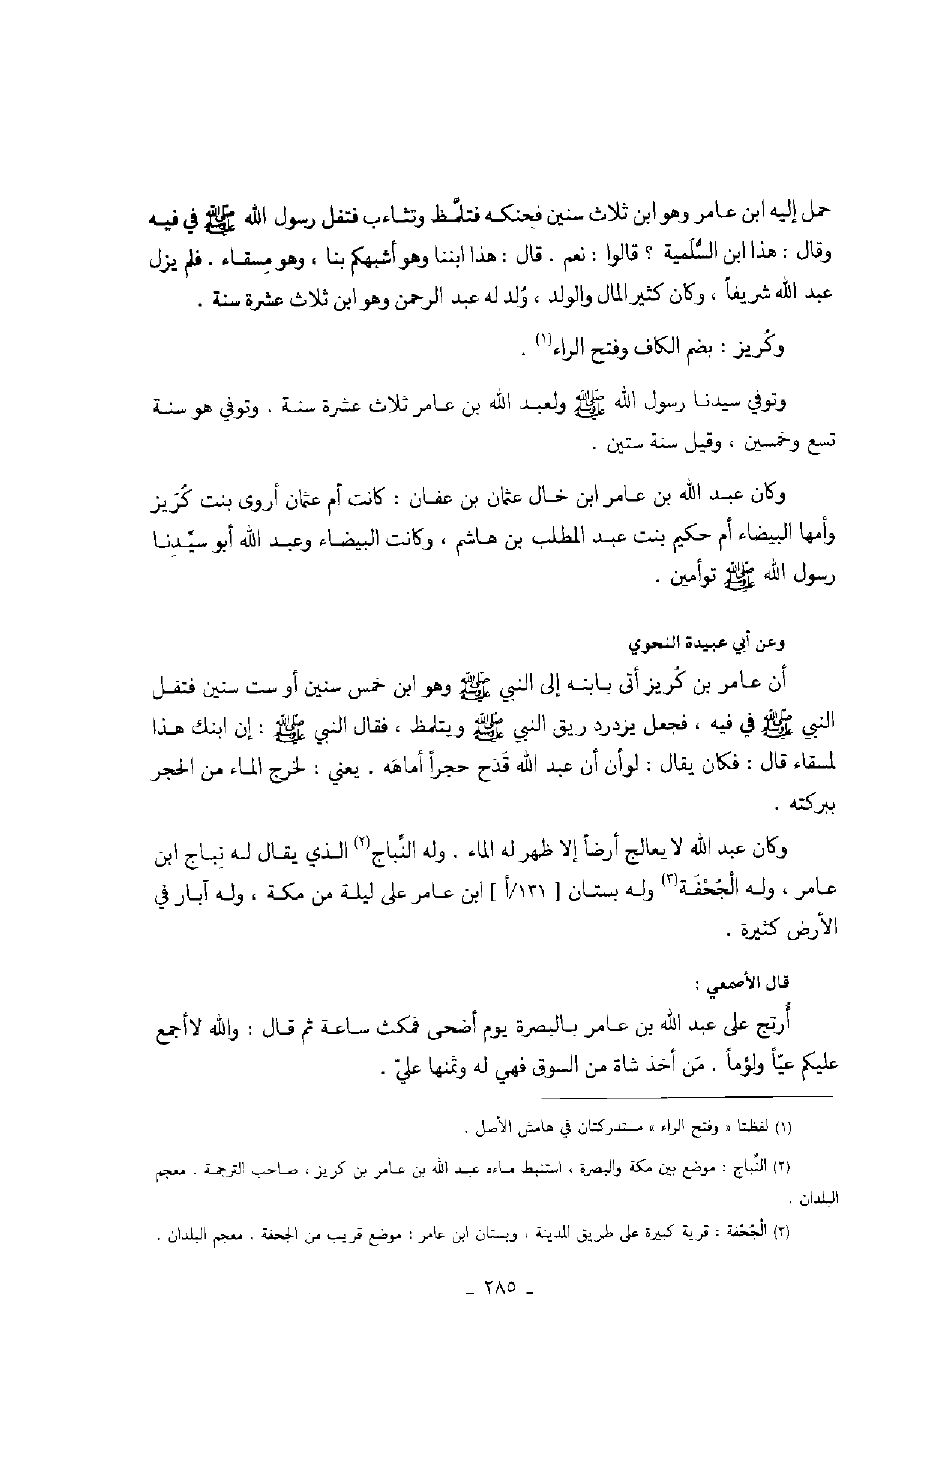 حمل إليه ابن عامر وهو ابن ثلاث سنين فحنكه فتلمَّظ وتثاءب فتفل رسول الله ﷺ في فيه
وقال : هذا ابن السُّلَمية ؟ قالوا : نعم . قال : هذا ابننا وهو أشبهكم بنا ، وهو مِسقاء . فلم يزل
عبد الله شريفاً ، وكان كثير المال والولد ، وُلد له عبد الرحمن وهو ابن ثلاث عشرة سنة .
وكُريز : بضم الكاف وفتح الراء(١) .
وتوفي سيدنا رسول الله ﷺ ولعبد الله بن عامر ثلاث عشرة سنة . وتوفي هو سنة
تسع وخمسين ، وقيل سنة ستين .
وكان عبد الله بن عامر ابن خال عثمان بن عفان : كانت أم عثمان أروى بنت كُرَيز
وأمها البيضاء أم حكيم بنت عبد المطلب بن هاشم ، وكانت البيضاء وعبد الله أبو سيِّدِنا
رسول الله ﷺ توأمين .
وعن أبي عبيدة النحوي
أن عامر بن كُريز أتى بابنه إلى النبي ﷺ وهو ابن خمس سنين أو ست سنين فتفل
النبي ﷺ في فيه ، فجعل يزدرد ريق النبي ﷺ ويتلمظ ، فقال النبي ﷺ : إن ابنك هذا
لمسقاء قال : فكان يقال : لو أن عبد الله قدَح حجراً أماهَه . يعني : لخرج الماء من الحجر
ببركته .
وكان عبد الله لا يعالج أرضاً إلا ظهر له الماء . وله النِّباج(٢) الذي يقال له نِباج ابن
عامر ، وله الْجُحْفَة(٣) وله بستان [ ١٣١/أ ] ابن عامر على ليلة من مكة ، وله آبار في
الأرض كثيرة .
قال الأصمعي :
أُرتج على عبد الله بن عامر بالبصرة يوم أضحى فمكث ساعة ثم قال : والله لا أجمع
عليكم عيّاً ولؤماً . مَن أخذ شاة من السوق فهي له وثمنها عليّ .
(١) لفظتا « وفتح الراء » مستدركتان في هامش الأصل .
(٢) النِّباج : موضع بين مكة والبصرة ، استنبط ماءه عبد الله بن عامر بن كريز ، صاحب الترجمة . معجم
البلدان .
(٣) الْجُحْفة : قرية كبيرة على طريق المدينة ، وبستان ابن عامر : موضع قريب من الجحفة . معجم البلدان .
ـ ٢٨٥ ـ